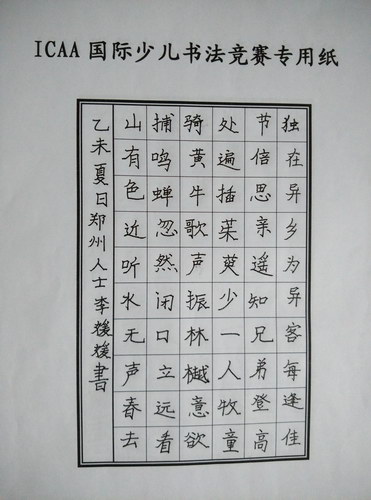 ICAA国际少儿书法竞赛专用纸
独在异乡为异客每逢佳
节倍思亲遥知兄弟登高
处遍插茱萸少一人牧童
骑黄牛歌声振林樾意欲
捕鸣蝉忽然闭口立远看
山有色近听水无声春去
乙未夏日郑州人士李書